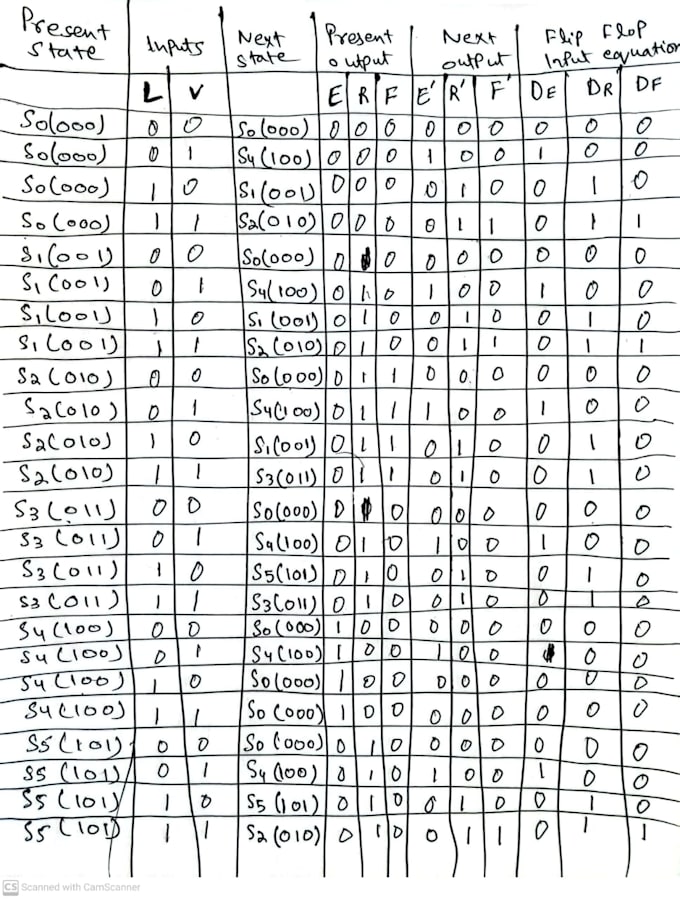 Present State Inputs Next state Present output Next output Flip Flop Input equation
L V E R F E' R' F' DE DR DF
S0(000) 0 0 S0(000) 0 0 0 0 0 0 0 0 0
S0(000) 0 1 S4(100) 0 0 0 1 0 0 1 0 0
S0(000) 1 0 S1(001) 0 0 0 0 1 0 0 1 0
S0(000) 1 1 S2(010) 0 0 0 0 1 1 0 1 1
S1(001) 0 0 S0(000) 0 0 0 0 0 0 0 0
S1(001) 0 1 S4(100) 0 1 0 1 0 0 1 0 0
S1(001) 1 0 S1(001) 0 1 0 0 1 0 0 1 0
S1(001) 1 1 S2(010) 0 1 0 0 1 1 0 1 1
S2(010) 0 0 S0(000) 0 1 1 0 0 0 0 0 0
S2(010) 0 1 S4(100) 0 1 1 1 0 0 1 0 0
S2(010) 1 0 S1(001) 0 1 1 0 1 0 0 1 0
S2(010) 1 1 S3(011) 0 1 1 0 1 0 0 1 0
S3(011) 0 0 S0(000) 0 0 0 0 0 0 0 0
S3(011) 0 1 S4(100) 0 1 0 1 0 0 1 0 0
S3(011) 1 0 S5(101) 0 1 0 0 1 0 0 1 0
S3(011) 1 1 S3(011) 0 1 0 0 1 0 0 1 0
S4(100) 0 0 S0(000) 1 0 0 0 0 0 0 0 0
S4(100) 0 1 S4(100) 1 0 0 1 0 0 0 0
S4(100) 1 0 S0(000) 1 0 0 0 0 0 0 0 0
S4(100) 1 1 S0(000) 1 0 0 0 0 0 0 0 0
S5(101) 0 0 S0(000) 0 1 0 0 0 0 0 0 0
S5(101) 0 1 S4(100) 0 1 0 1 0 0 1 0 0
S5(101) 1 0 S5(101) 0 1 0 0 1 0 0 1 0
S5(101) 1 1 S2(010) 0 1 0 0 1 1 0 1 1
CS Scanned with CamScanner